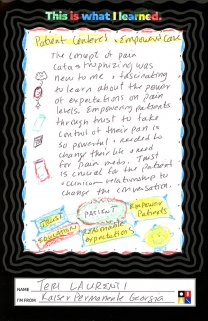 This is what I learned.
Patient Centered & Empowered Care
The concept of pain
catastrophizing was
new to me & fascinating
to learn about the power
of expectations on pain
levels. Empowering patients
through trust to take
control of their pain is
so powerful & needed to
change their life & need
for pain meds. Trust
is crucial for the patient
clinician relationship to
change the conversation.
TRUST
PATIENT
Empower
Patients
EDUCATION
Reasonable
expectations
NAME TERI LAURENTI
I'M FROM Kaiser Permanente Georgia